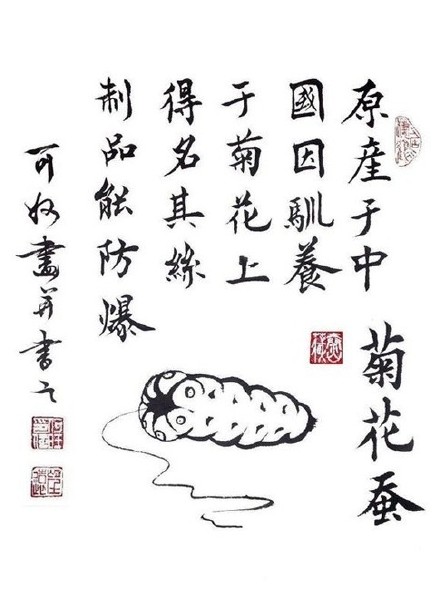 菊花蚕
原産于中
國因馴養
于菊花上
得名其絲
制品能防爆
可奴畫并書之